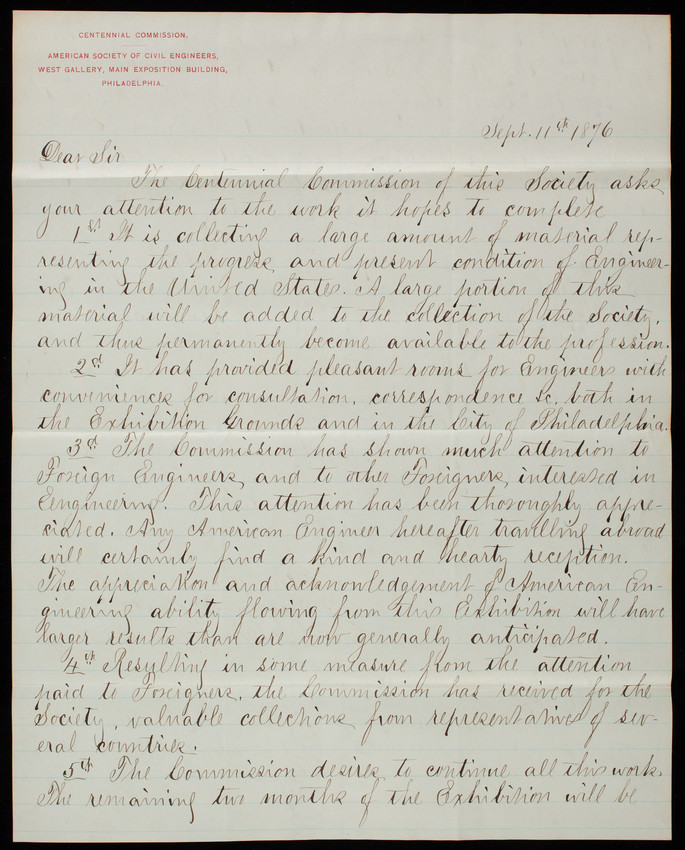 CENTENNIAL COMMISSION.
AMERICAN SOCIETY OF CIVIL ENGINEERS,
WEST GALLERY, MAIN EXPOSITION BUILDING,
PHILADELPHIA.
Sept. 11th 1876
Dear Sir
The Centennial Commission of this Society asks
your attention to the work it hopes to complete
1st It is collecting a large amount of material rep-
resenting the progress and present condition of Engineer-
ing in the United States. A large portion of this
material will be added to the collection of the Society,
and thus permanently become available to the profession.
2d It has provided pleasant rooms for Engineers with
conveniences for consultation, correspondence &c. both in
the Exhibition Grounds and in the City of Philadelphia.
3d The Commission has shown much attention to
Foreign Engineers, and to other Foreigners, interested in
Eengineering. This attention has been thoroughly appre-
ciated. Any American Engineer hereafter travelling abroad
will certainly find a kind and hearty reception.
The appreciation and acknowledgement of American En-
gineering ability flowing from this Exhibition will have
larger results than are now generally anticipated.
4th Resulting in some measure from the attention
paid to Foreigners, the Commission has received for the
Society, valuable collections from representatives of sev-
eral countries.
5th The Commission desires to continue all this work.
The remaining two months of the Exhibition will be